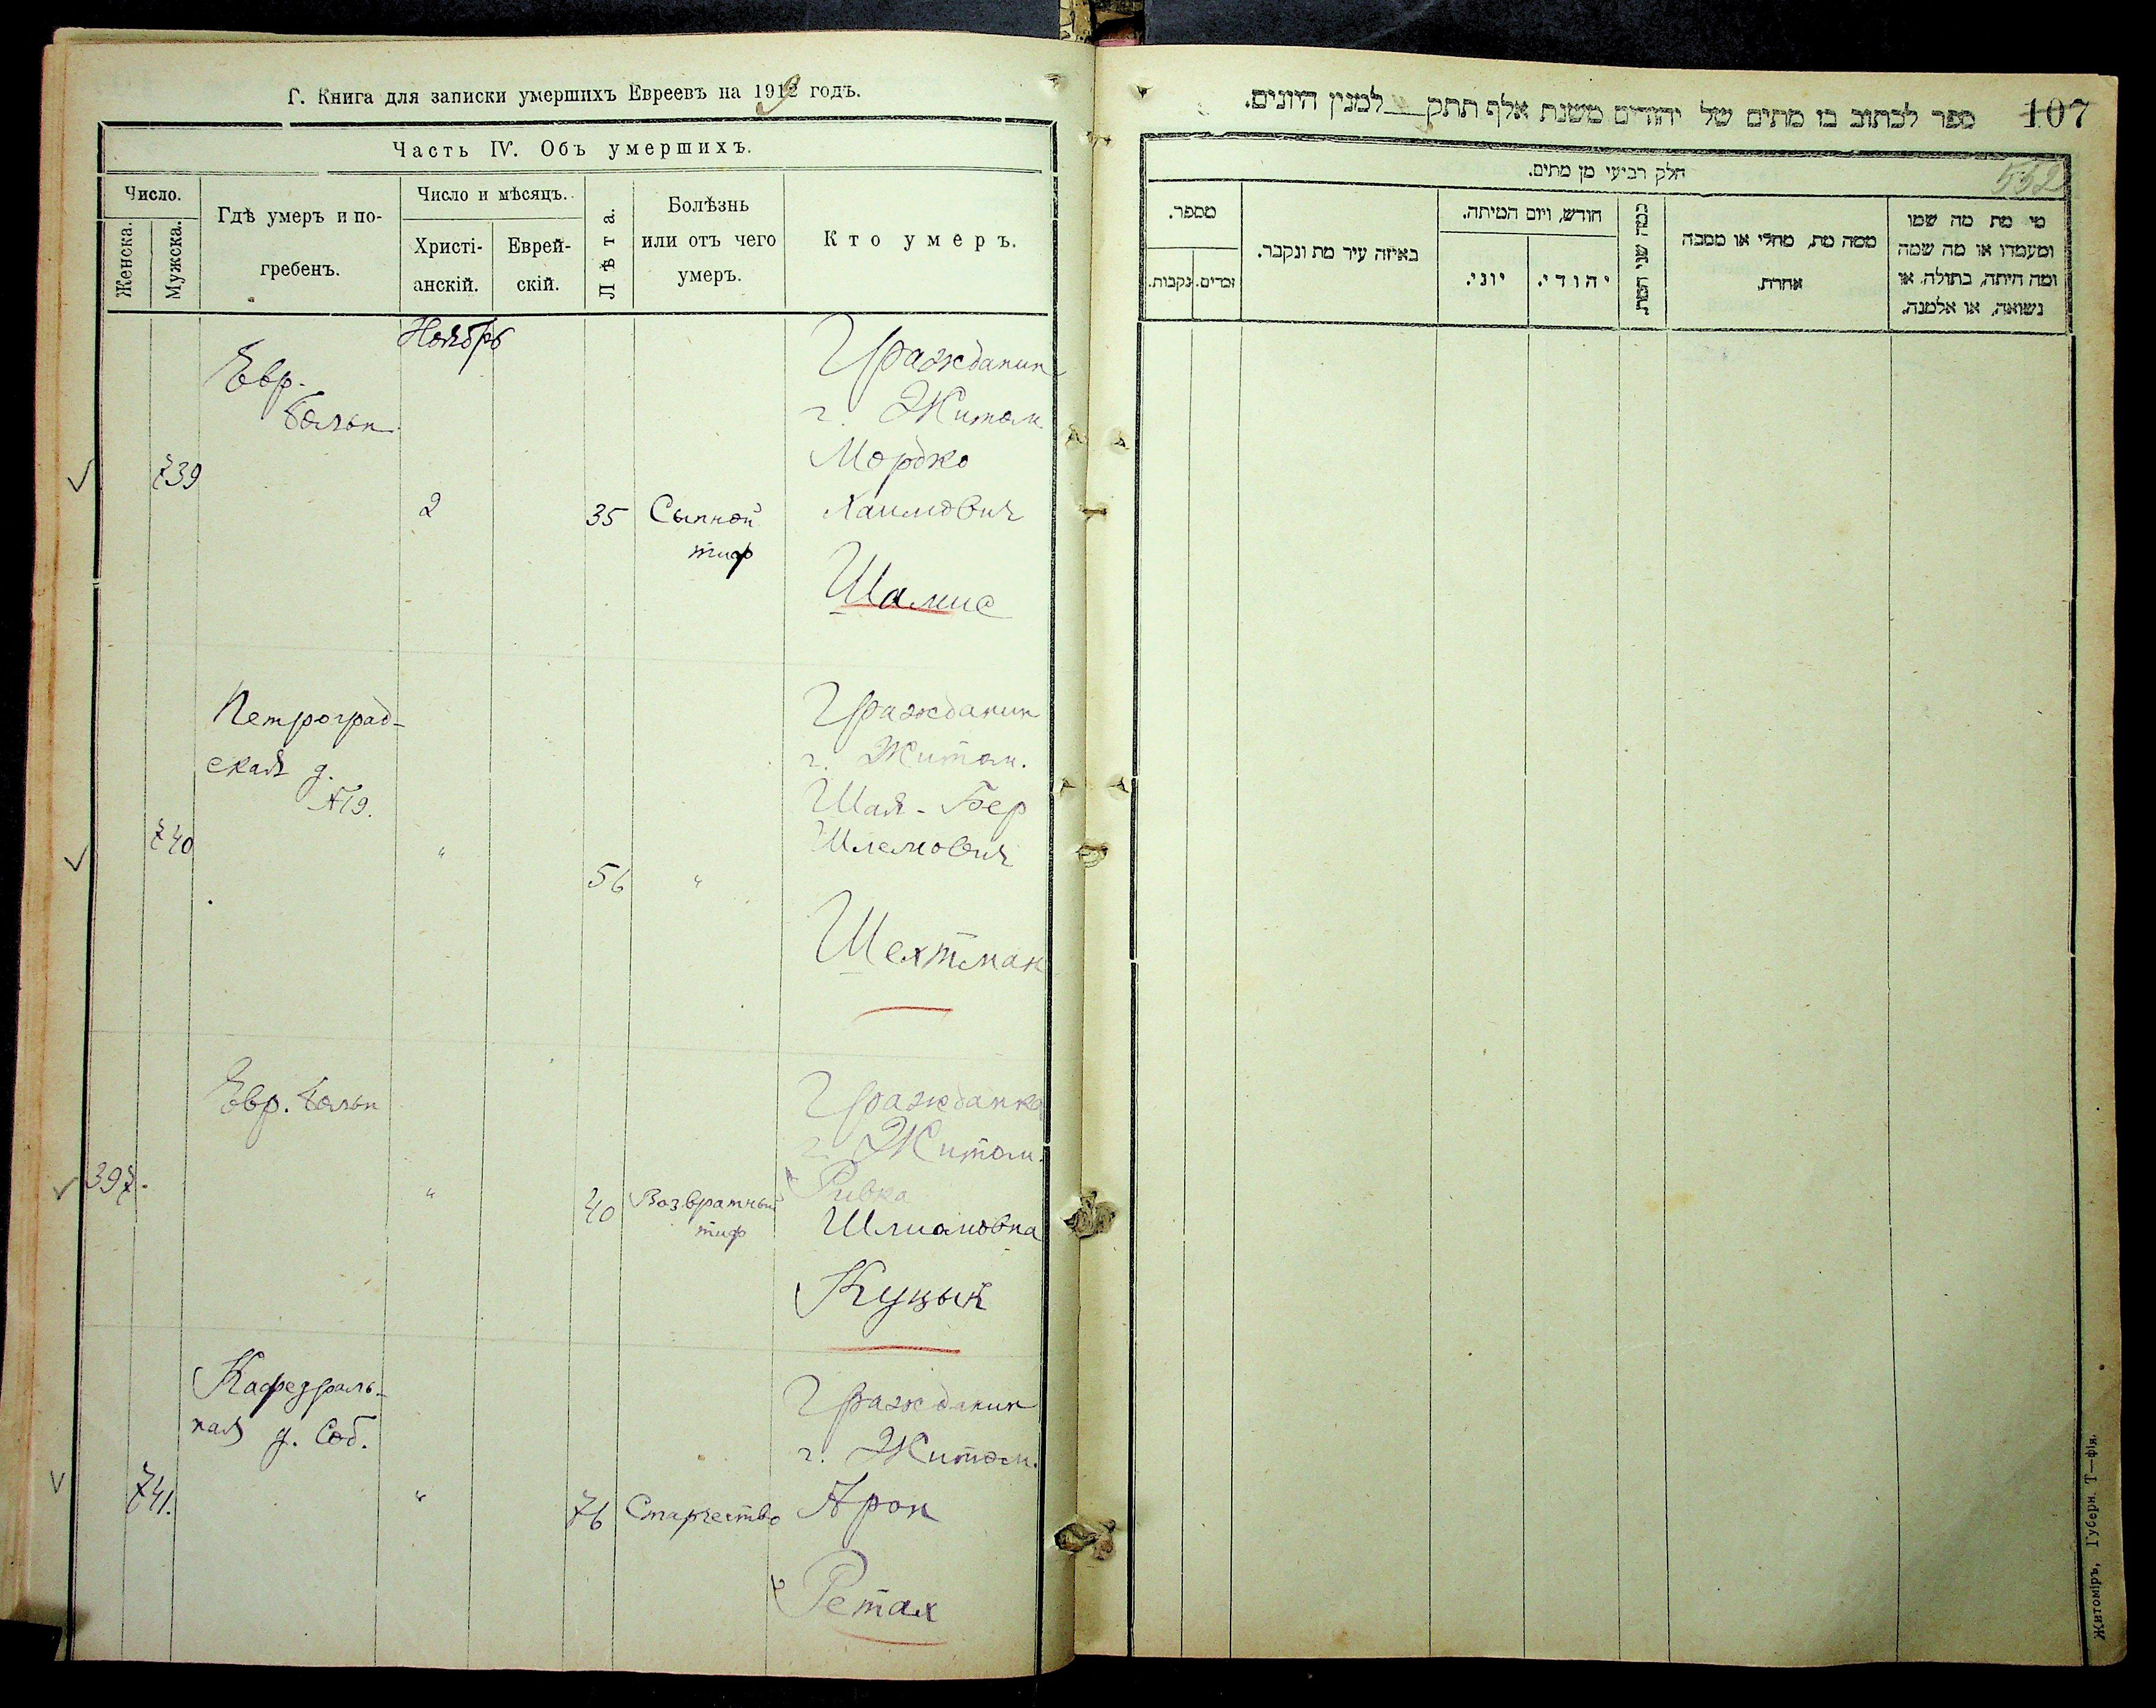 Г. Книга для записки умершихъ Евреевъ на 1919 годъ.
Часть IV. Объ умершихъ.
Число.
Женска.
Мужска.
Гдѣ умеръ и по-
гребенъ.
Число и мѣсяцъ.
Христі-
анскій.
Еврей-
скій.
Лѣта.
Болѣзнь
или отъ чего
умеръ.
Кто умеръ.
Ноябрь
Евр.
больн.
739
2
35
Сыпной
тиф
Гражданин
г. Житом.
Мордко
Хаимович
Шамис
Петроград-
ская д.
№19.
740
"
56
"
Гражданин
г. Житом.
Шая-Бер
Шлемович
Шехтман
Евр. больн
397.
"
40
Возвратный
тиф
Гражданка
г. Житом.
Ривка
Шлиомовна
Куцый
Кафедраль-
ная д. Соб.
741.
"
76
Старчество
Гражданин
г. Житом.
Арон
Ретах
ספר לכתוב בו מתים של יהודים משנת אלף תתק למנין היונים.
107
552
חלק רביעי מן מתים.
מספר.
זכרים.
נקבות.
באיזה עיר מת ונקבר.
חודש, ויום המיתה.
יוני.
יהודי.
כמה שני המת.
ממה מת, מחלי או מסבה
אחרת.
מי מת מה שמו
ומעמדו או מה שמה
ומה היתה, בתולה, או
נשואה, או אלמנה.
Житоміръ, Губерн. Т—фія.